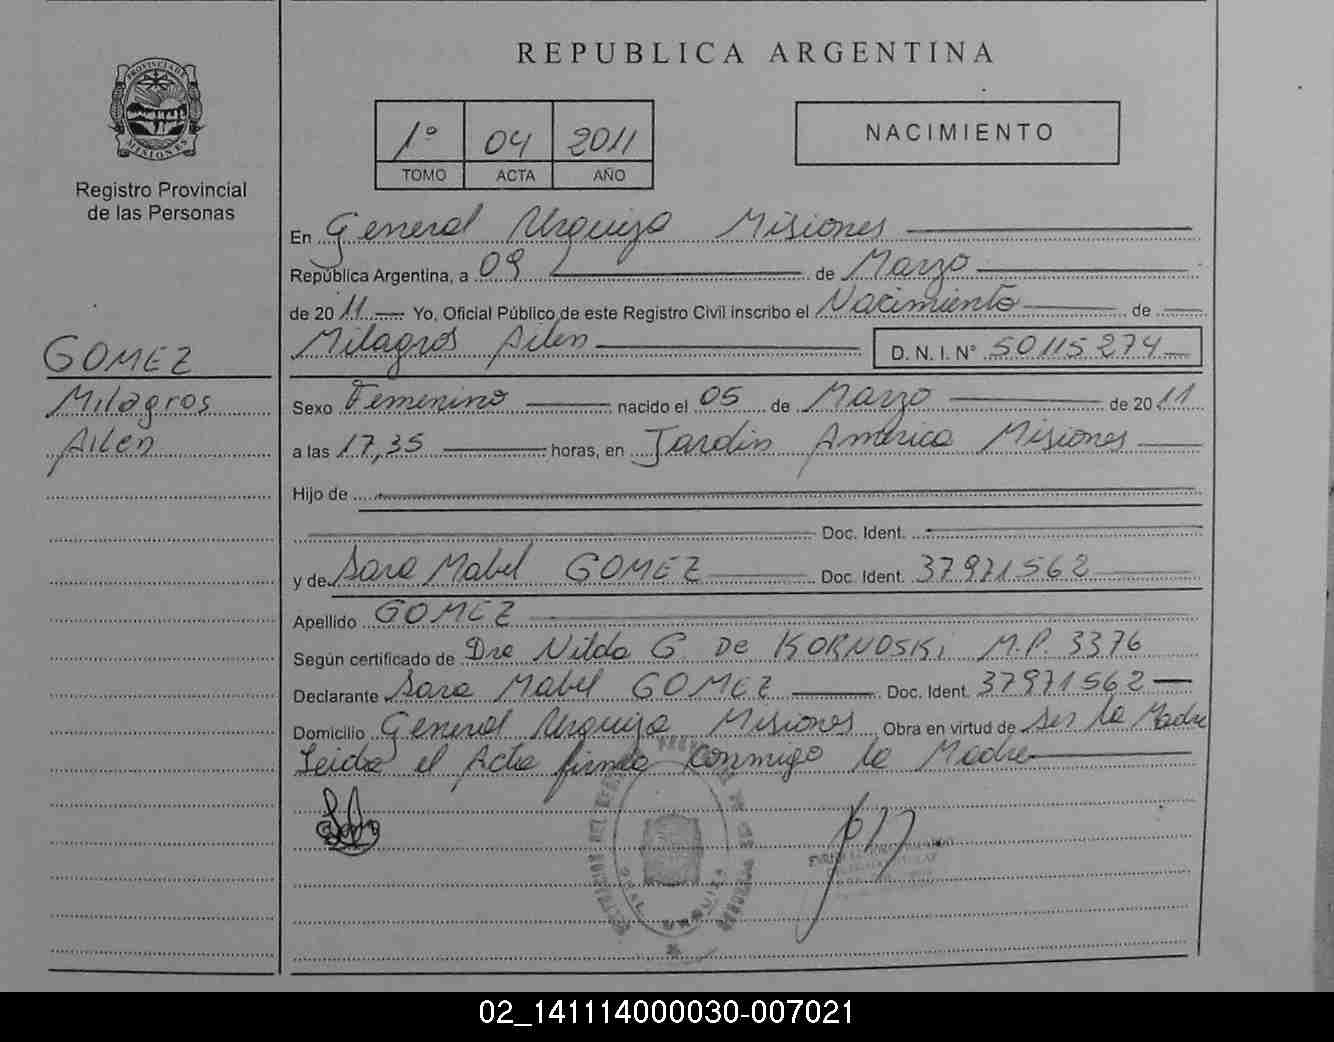 PROVINCIA DE
MISIONES
Registro Provincial
de las Personas
GOMEZ
Milagros
Ailen
REPUBLICA ARGENTINA
1º 04 2011
TOMO ACTA AÑO
NACIMIENTO
En General Urquiza Misiones
República Argentina, a 09 de Marzo
de 2011 Yo, Oficial Público de este Registro Civil inscribo el Nacimiento de
Milagros Ailen D. N. I. Nº 50115274
Sexo Femenino nacido el 05 de Marzo de 2011
a las 17,35 horas, en Jardin America Misiones
Hijo de
Doc. Ident.
y de Sara Mabel GOMEZ Doc. Ident. 37971562
Apellido GOMEZ
Según certificado de Dra Nilda G. De KORNOSKi M.P. 3376
Declarante Sara Mabel GOMEZ Doc. Ident. 37971562
Domicilio General Urquiza Misiones Obra en virtud de Ser la Madre
Leida el Acta firma Conmigo la Madre
GRAL. URQUIZA
02_141114000030-007021